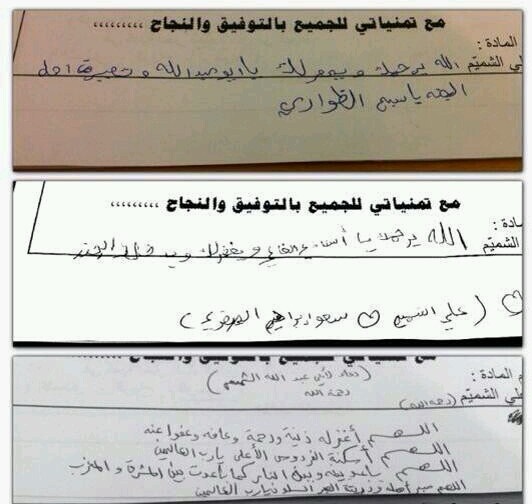 مع تمنياتي للجميع بالتوفيق والنجاح ,,,,,,,,,
المادة :
لي الشميّم
الله يرحمك ويغفر لك يا ابو عبد الله و
الجنه يا
مع تمنياتي للجميع بالتوفيق والنجاح ,,,,,,,,,
مادة :
الشميّم
الله يرحمك يا أستاذ ويغفر لك ويدخلك الجنة
( علي الشميم
مع تمنياتي للجميع بالتوفيق والنجاح ,,,,,,,,,
المادة :
(دعاء لأبي عبد الله الشميم)
رحمة الله
لي الشميّم (رحمه الله)
اللهم أغفر له ذنبة ورحمة وعافه وعفوا عنه
اللهم أسكنة الفردوس الأعلى يارب العالمين
اللهم باعد بينه وبين النار كما باعدت بين المشرق والمغرب
اللهم صبر أهله وذريتة الصبر و السلوان يارب العالمين